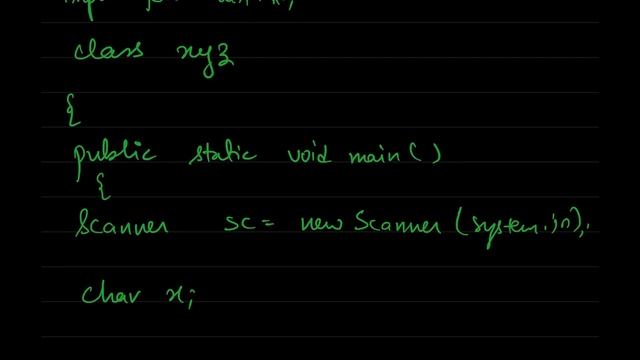 class xyz
{
public static void main()
{
Scanner sc = new Scanner (system.in);
char x;